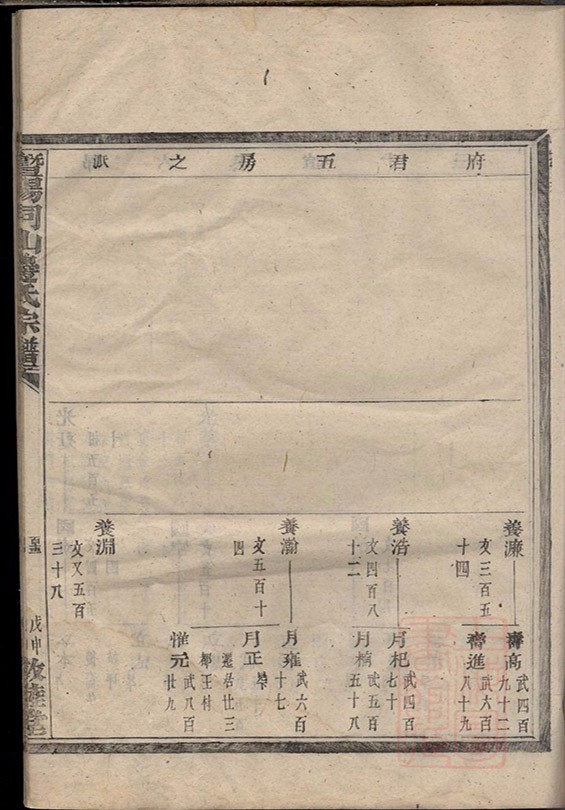 府君五房之派
養濂
文三百五
十四
壽高
武四百
九十二
壽進
武六百
八十九
養浩
文四百八
十二
月杞
武四百
七十
月楠
武五百
五十八
養瀚
文五百十
四
月雍
武六百
十七
月正
遷居廿三
都王村
惟元
武八百
廿九
養淵
文又五百
三十八
暨陽同山邊氏宗譜
戊申
敦睦堂